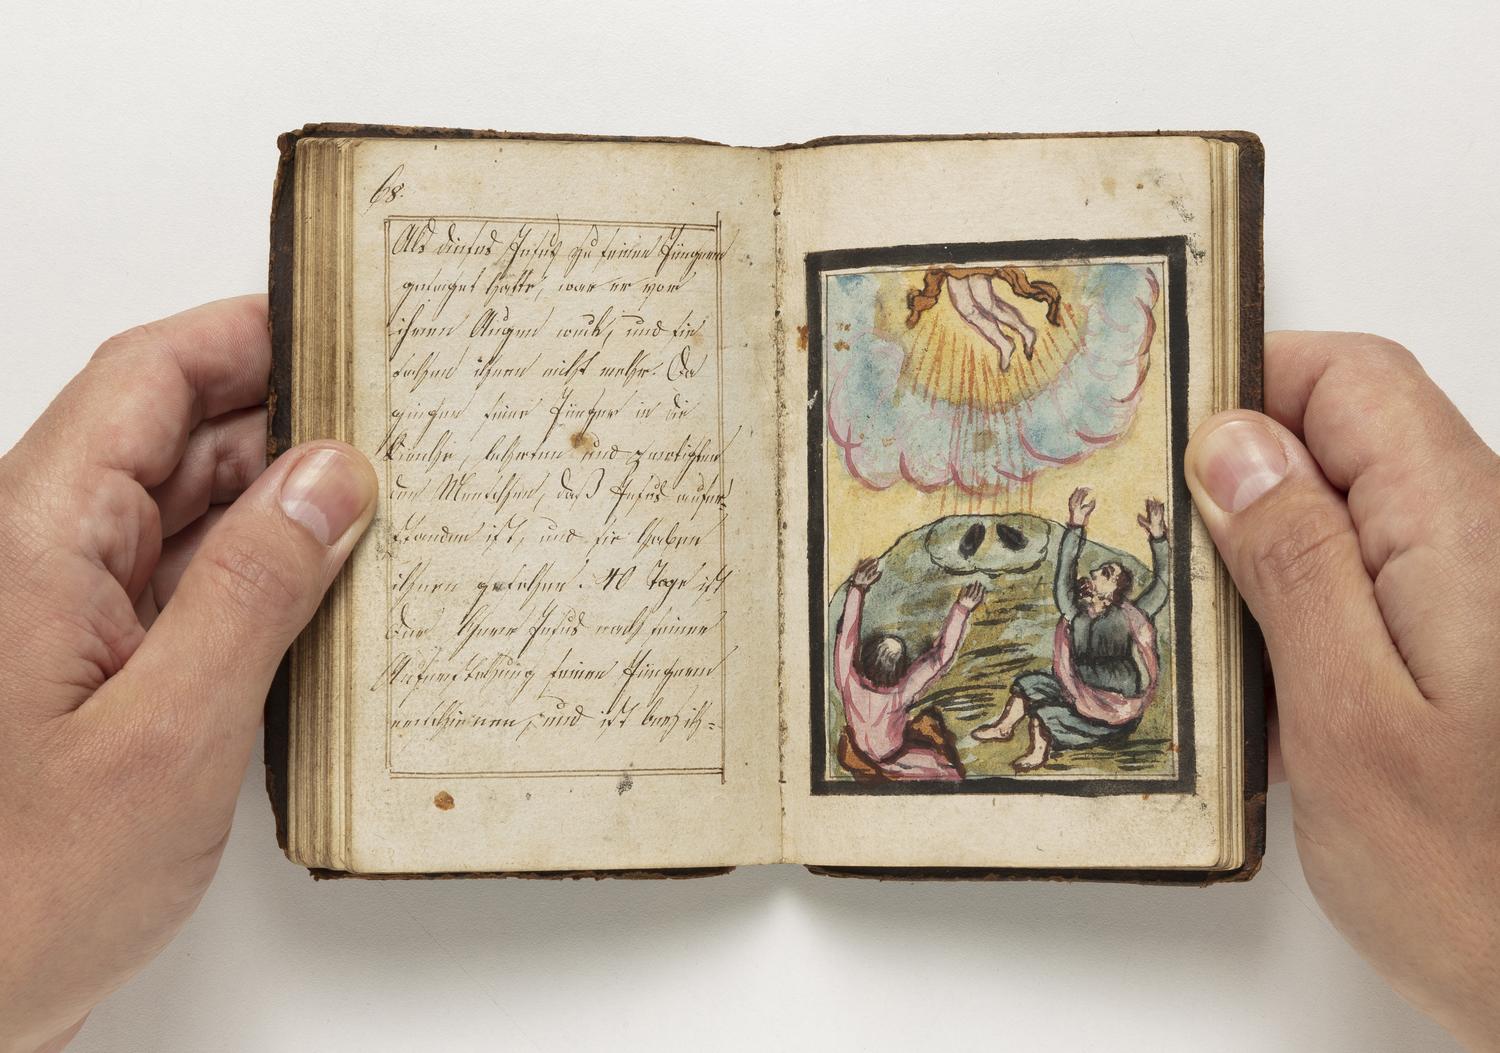 68.
Als dieses Jesus zu seinen Jüngern
gesaget hatte, war er vor
ihren Augen weck, und sie
sahen ihnen nicht mehr. Da
gingen seine Jünger in die
lehrten und
den Menschen, daß Jesus aufer-
standen ist, und sie haben
ihnen gesehen. 40 Tage ist
der Herr Jesus nach seiner
Auferstehung seinen Jüngern
erschienen, und ist